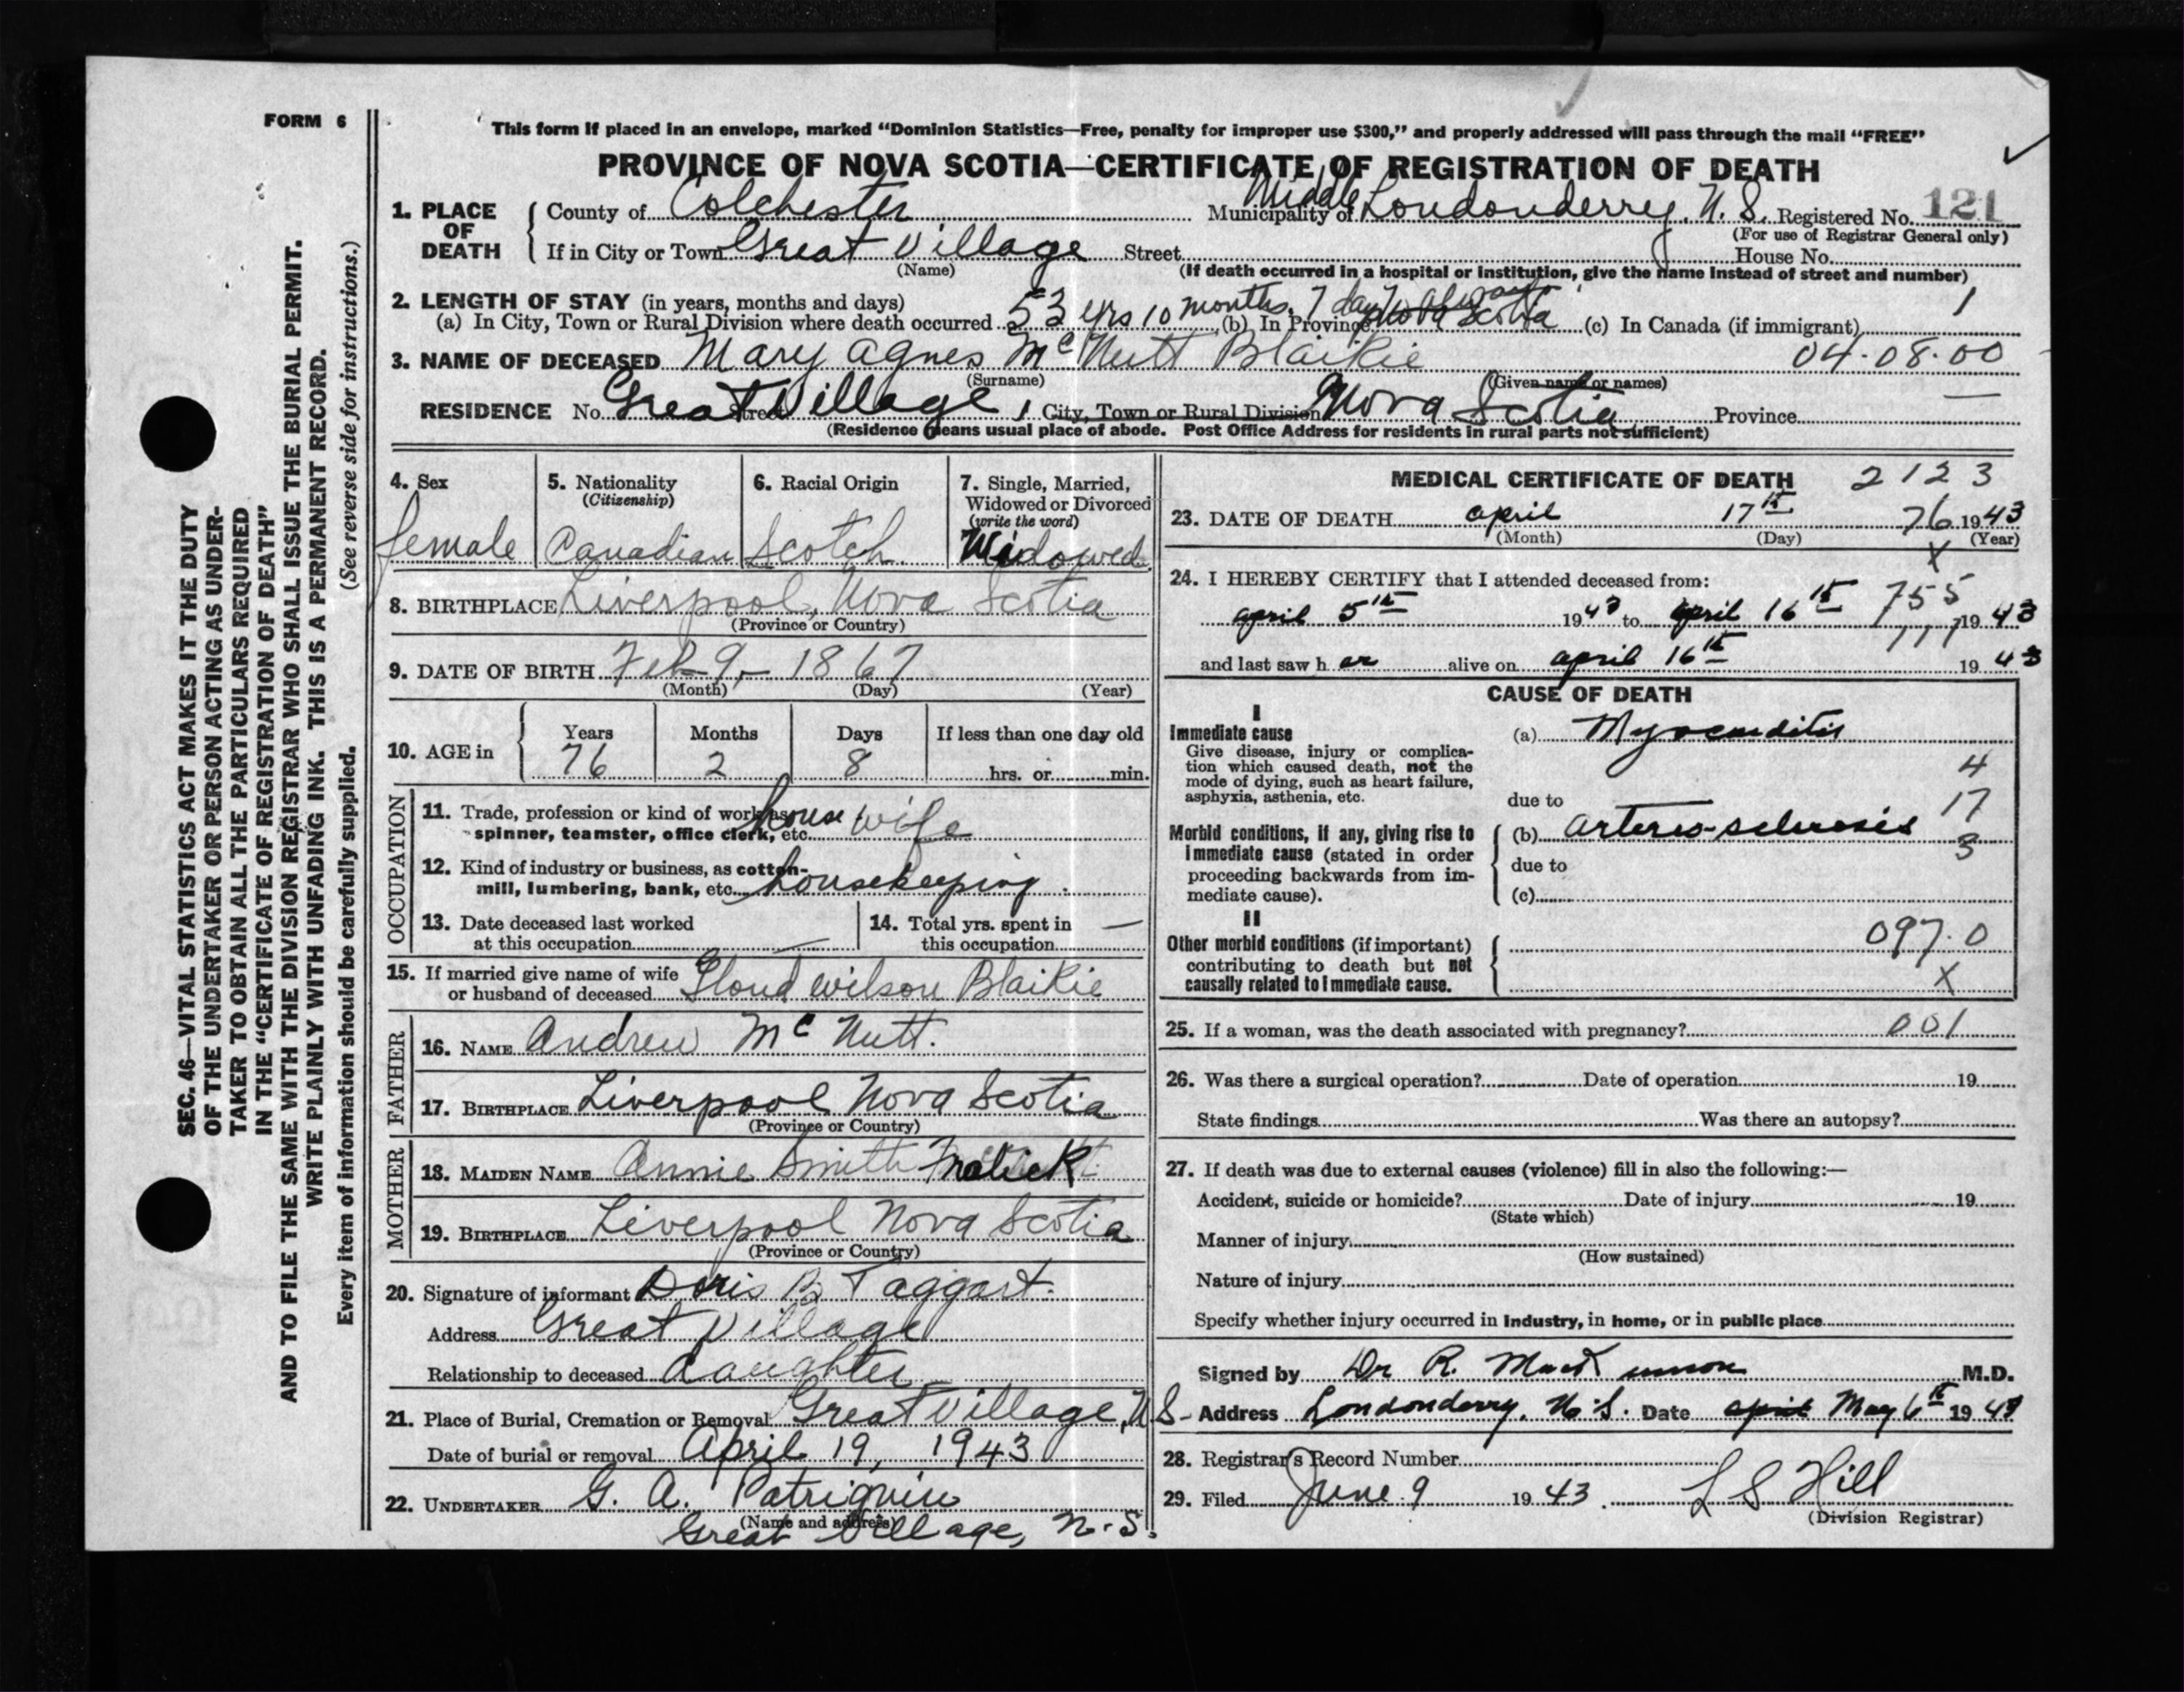 FORM 6
This form if placed in an envelope, marked "Dominion Statistics—Free, penalty for improper use $300," and properly addressed will pass through the mail "FREE"
PROVINCE OF NOVA SCOTIA—CERTIFICATE OF REGISTRATION OF DEATH
1. PLACE OF DEATH
County of Colchester Municipality of Middle Londonderry, N. S. Registered No. 121
(For use of Registrar General only)
If in City or Town Great Village Street House No.
(Name) (If death occurred in a hospital or institution, give the name instead of street and number)
2. LENGTH OF STAY (in years, months and days)
(a) In City, Town or Rural Division where death occurred 53 yrs 10 months, 7 days (b) In Province always Nova Scotia (c) In Canada (if immigrant) 1
3. NAME OF DECEASED Mary Agnes McNutt Blaikie 04-08-00
(Surname) (Given name or names)
RESIDENCE No. Great Street Village, City, Town or Rural Division Nova Scotia Province
(Residence means usual place of abode. Post Office Address for residents in rural parts not sufficient)
4. Sex
female
5. Nationality
(Citizenship)
Canadian
6. Racial Origin
Scotch.
7. Single, Married,
Widowed or Divorced
(write the word)
Widowed.
8. BIRTHPLACE Liverpool, Nova Scotia
(Province or Country)
9. DATE OF BIRTH Feb 9, - 1867
(Month) (Day) (Year)
10. AGE in
Years Months Days If less than one day old
76 2 8 hrs. or min.
OCCUPATION
11. Trade, profession or kind of work as
spinner, teamster, office clerk, etc. house wife
12. Kind of industry or business, as cotton-
mill, lumbering, bank, etc. housekeeping.
13. Date deceased last worked
at this occupation —
14. Total yrs. spent in
this occupation —
15. If married give name of wife
or husband of deceased Gloud Wilson Blaikie
FATHER
16. NAME Andrew McNutt.
17. BIRTHPLACE Liverpool Nova Scotia
(Province or Country)
MOTHER
18. MAIDEN NAME Annie Smith Fralick
19. BIRTHPLACE Liverpool Nova Scotia
(Province or Country)
20. Signature of informant Doris B Taggart.
Address Great Village
Relationship to deceased daughter
21. Place of Burial, Cremation or Removal Great Village, N S-
Date of burial or removal April 19, 1943
22. UNDERTAKER G. A. Patriquin
(Name and address)
Great Village, N. S.
MEDICAL CERTIFICATE OF DEATH 2123
23. DATE OF DEATH April 17th 76 1943
(Month) (Day) (Year)
X
24. I HEREBY CERTIFY that I attended deceased from:
755
April 5th 1943 to April 16th 1943
111
and last saw h er alive on April 16th 1943
CAUSE OF DEATH
I
Immediate cause
Give disease, injury or complica-
tion which caused death, not the
mode of dying, such as heart failure,
asphyxia, asthenia, etc.
(a) Myocarditis
4
due to
17
Morbid conditions, if any, giving rise to
immediate cause (stated in order
proceeding backwards from im-
mediate cause).
(b) arterio-sclerosis
3
due to
(c)
II
Other morbid conditions (if important)
contributing to death but not
causally related to immediate cause.
097.0
X
25. If a woman, was the death associated with pregnancy? 001
26. Was there a surgical operation? Date of operation 19
State findings Was there an autopsy?
27. If death was due to external causes (violence) fill in also the following:—
Accident, suicide or homicide? Date of injury 19
(State which)
Manner of injury
(How sustained)
Nature of injury
Specify whether injury occurred in industry, in home, or in public place
Signed by Dr R. MacKinnon M.D.
Address Londonderry, N. S. Date April May 6th 1943
28. Registrar's Record Number
29. Filed June 9 1943. L S Hill
(Division Registrar)
SEC. 46—VITAL STATISTICS ACT MAKES IT THE DUTY
OF THE UNDERTAKER OR PERSON ACTING AS UNDER-
TAKER TO OBTAIN ALL THE PARTICULARS REQUIRED
IN THE "CERTIFICATE OF REGISTRATION OF DEATH"
AND TO FILE THE SAME WITH THE DIVISION REGISTRAR WHO SHALL ISSUE THE BURIAL PERMIT.
WRITE PLAINLY WITH UNFADING INK. THIS IS A PERMANENT RECORD.
Every item of information should be carefully supplied. (See reverse side for instructions.)